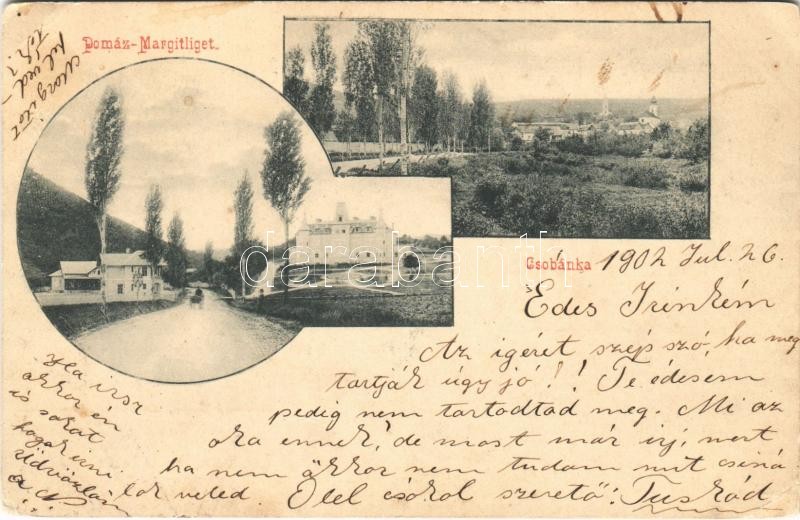 Domáz-Margitliget.
Csobánka 1902 Jul. 26.
Édes Irénkém
Az igéret szép szó, ha meg
tartják úgy jó!! Te édesem
pedig nem tartodtad meg. Mi az
oka ennek, de most már irj, mert
ha nem akkor nem tudom mit csiná
lok veled Ölel csókol szerető:
Ha irsz
akkor én
is sokat
fogok irni
darabanth.com